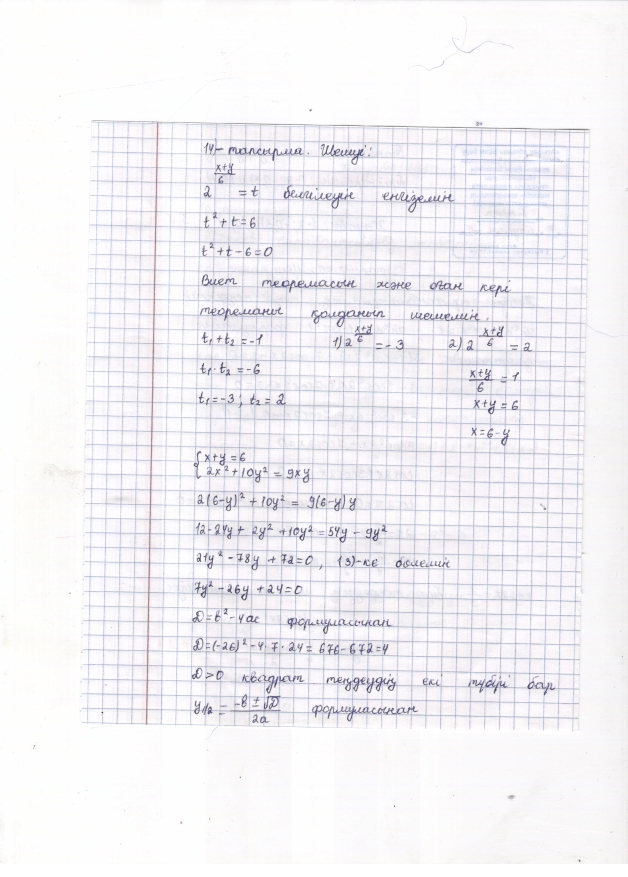 14-тапсырма. Шешуі:
2^((x+y)/6) = t белгілеуін енгіземін
t² + t = 6
t² + t - 6 = 0
Виет теоремасын және оған кері
теореманы қолданып шешемін.
t₁ + t₂ = -1 1) 2^((x+y)/6) = -3 2) 2^((x+y)/6) = 2
t₁ · t₂ = -6 (x+y)/6 = 1
t₁ = -3; t₂ = 2 x+y = 6
x = 6-y
{ x+y = 6
2x² + 10y² = 9xy
2(6-y)² + 10y² = 9(6-y)y
12 - 24y + 2y² + 10y² = 54y - 9y²
21y² - 78y + 72 = 0, (3)-ке бөлемін
7y² - 26y + 24 = 0
D = b² - 4ac формуласынан
D = (-26)² - 4 · 7 · 24 = 676 - 672 = 4
D > 0 квадрат теңдеудің екі түбірі бар
y₁/₂ = (-b ± √D)/2a формуласынан